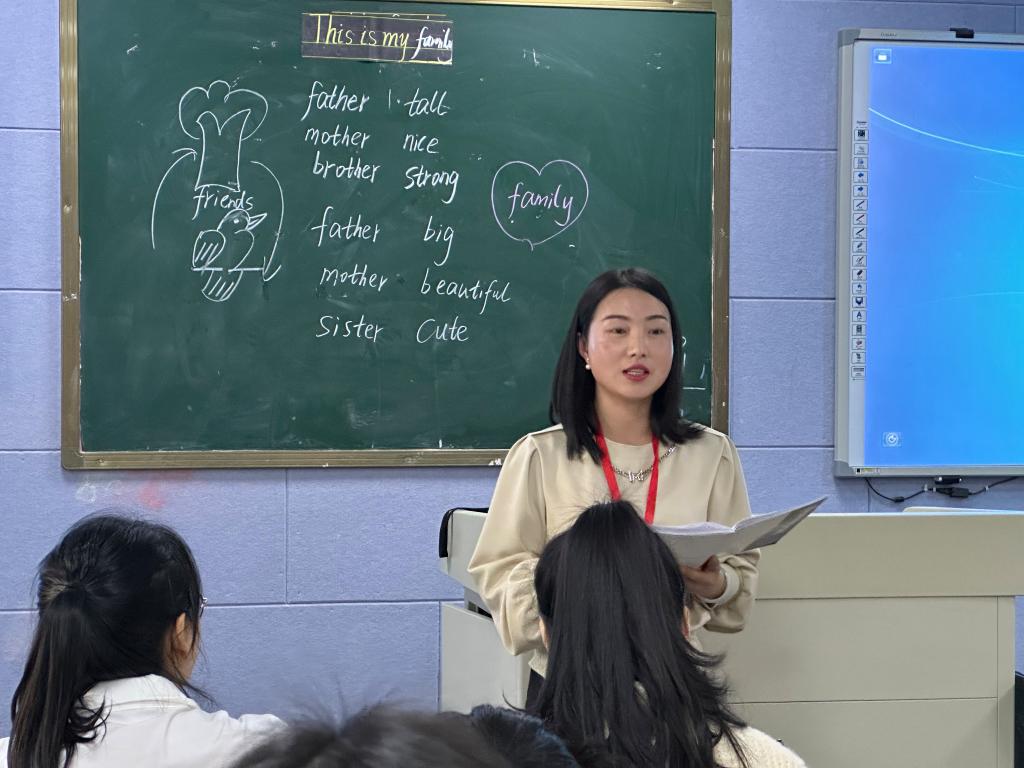 This is my family
father 1. tall
mother nice
brother strong
friends
family
father big
mother beautiful
sister cute